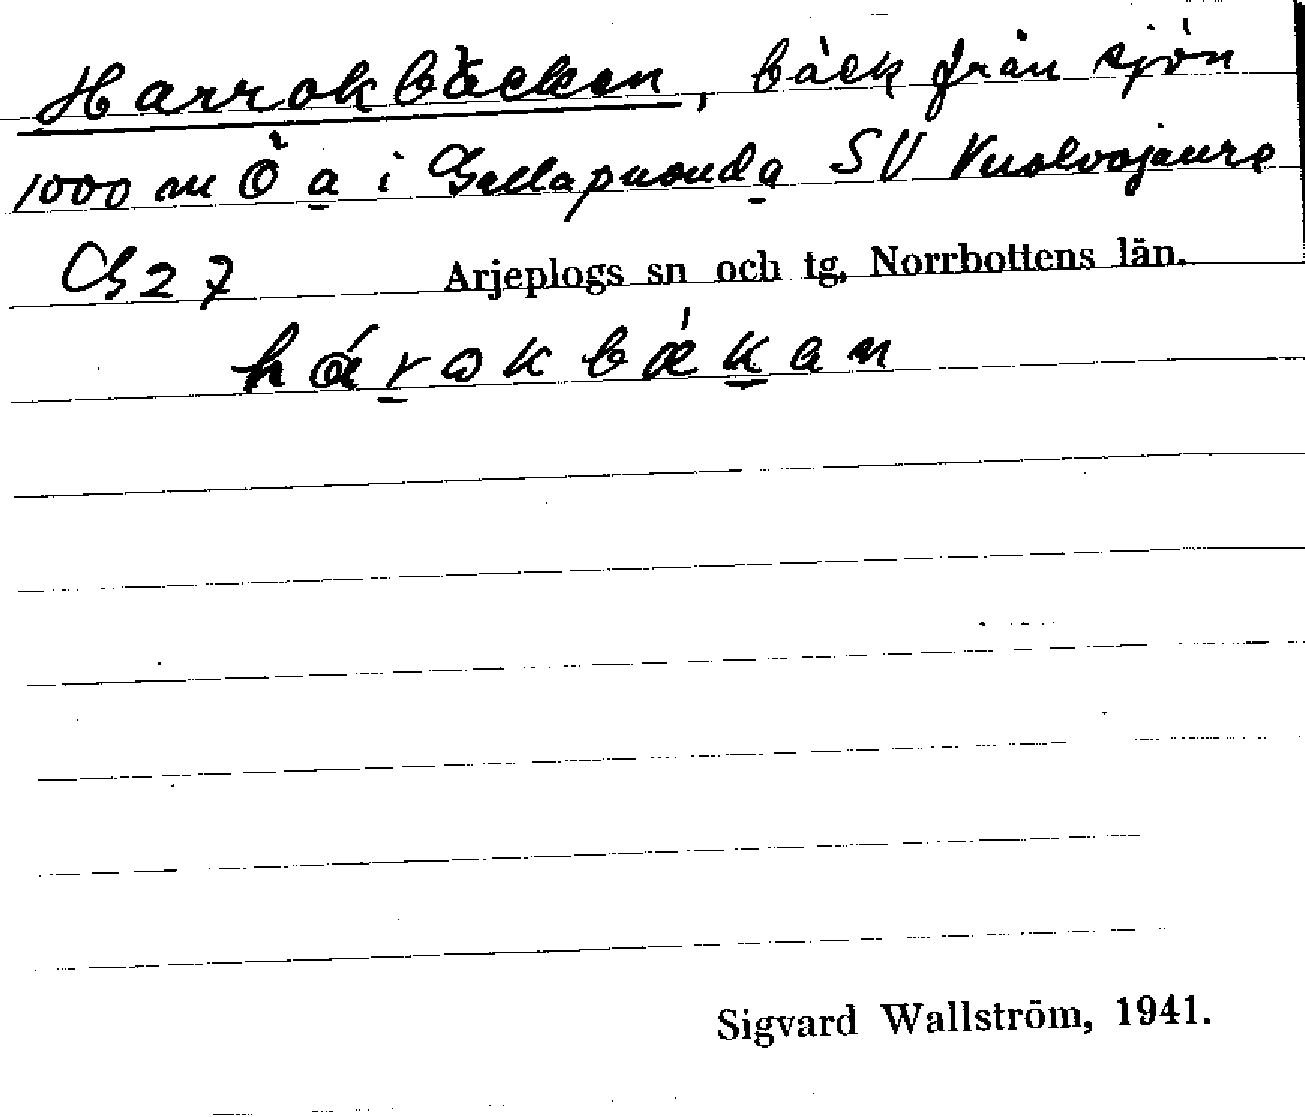 Harrokbäcken, bäck från sjön
1000 m Ö a i Gallapuouda SV Vuolvojaure
G27 Arjeplogs sn och tg, Norrbottens län.
hárokbǽkan
Sigvard Wallström, 1941.